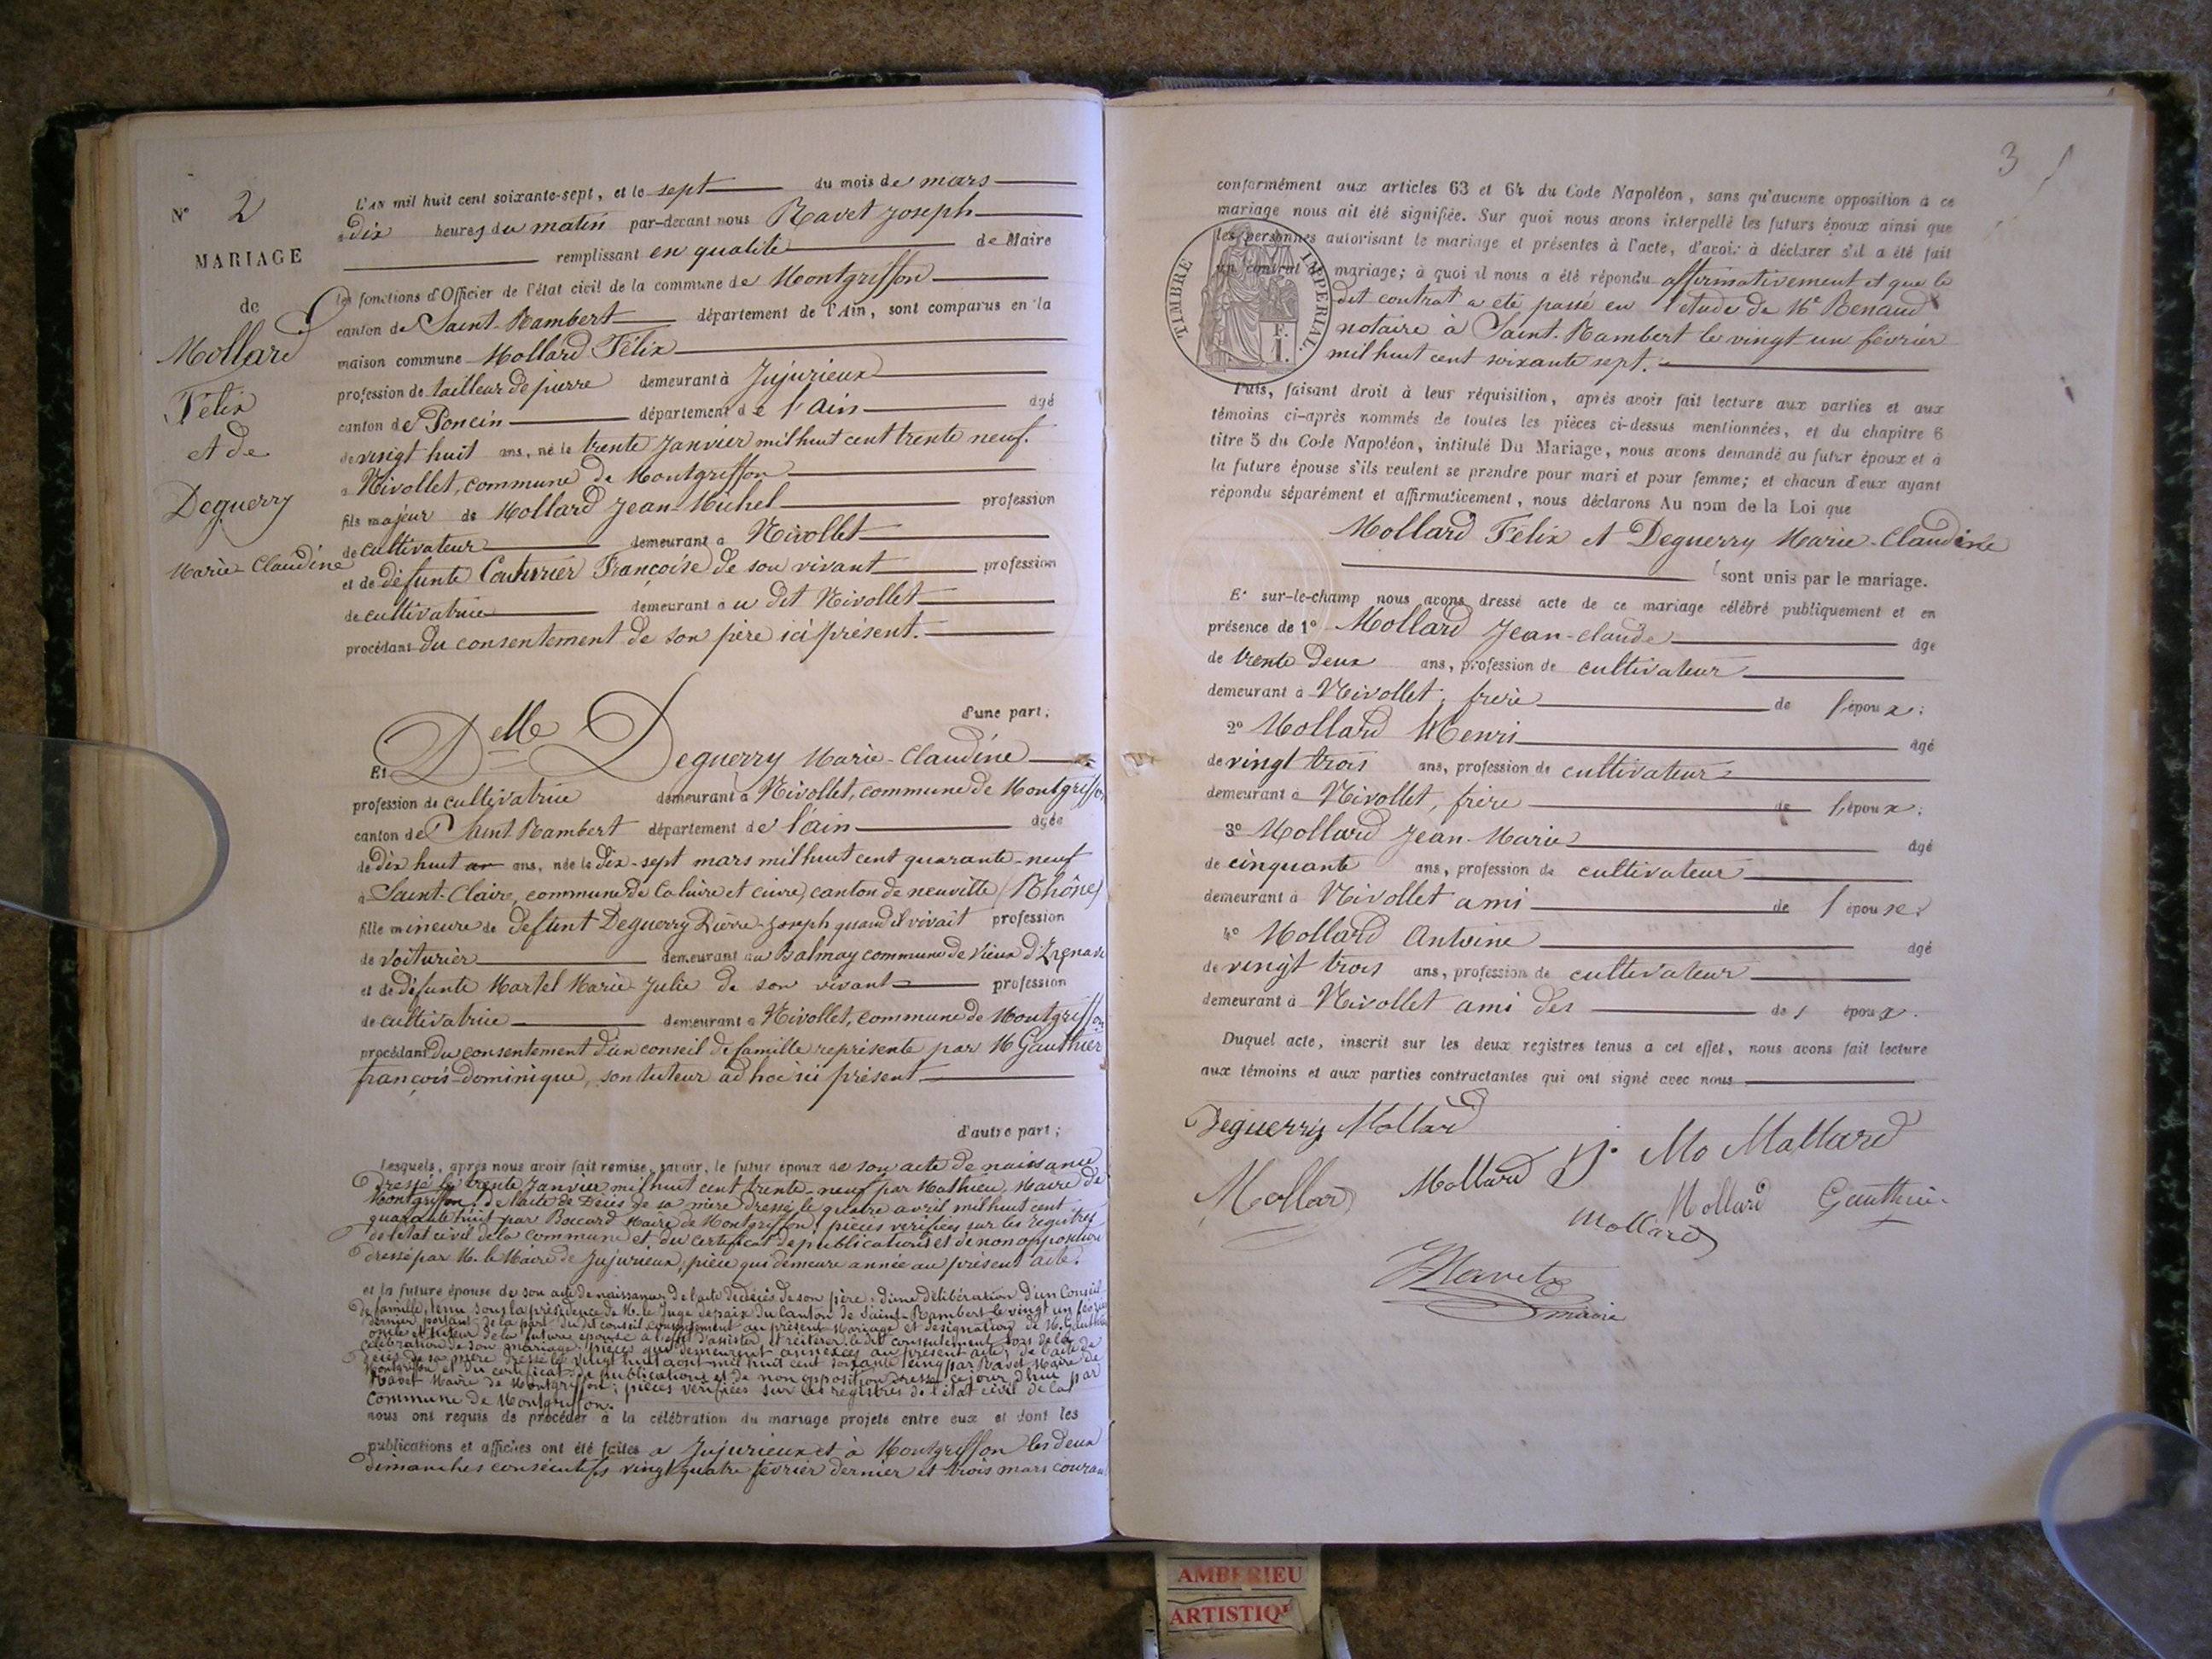 N° 2
MARIAGE
de
Mollard
Félix
et de
Deguerry
Marie-Claudine
L'AN mil huit cent soixante-sept, et le sept du mois de mars
à dix heures du matin par-devant nous Ravet Joseph
remplissant en qualité de Maire
les fonctions d'Officier de l'état civil de la commune de Montgriffon
canton de Saint-Rambert département de l'Ain, sont comparus en la
maison commune Mollard Félix
profession de tailleur de pierre demeurant à Jujurieux
canton de Poncin département de l'Ain âgé
de vingt huit ans, né le trente Janvier mil huit cent trente neuf.
à Nivollet, commune de Montgriffon
fils majeur de Mollard Jean-Michel profession
de cultivateur demeurant à Nivollet
et de défunte Couturier Françoise de son vivant profession
de cultivatrice demeurant au dit Nivollet
procédant du consentement de son père ici présent.
d'une part;
Et Delle Deguerry Marie-Claudine
profession de cultivatrice demeurant à Nivollet, commune de Montgriffon
canton de Saint Rambert département de l'ain âgée
de dix huit ans, née le dix-sept mars mil huit cent quarante-neuf
à Saint-Claire, commune de Caluire et cuire, canton de neuville (Rhône)
fille mineure de défunt Deguerry Pierre-Joseph quand il vivait profession
de voiturier demeurant au Balmay commune de Vieux d'Izenave
et de défunte Martel Marie Julie de son vivant profession
de cultivatrice demeurant à Nivollet, commune de Montgriffon
procédant du consentement d'un conseil de famille représenté par M Gauthier
françois-dominique, son tuteur ad hoc ici présent
d'autre part;
Lesquels, après nous avoir fait remise, savoir, le futur époux de son acte de naissance
dressé le trente Janvier mil huit cent trente-neuf par Mathieu Maire de
Montgriffon, de l'acte de Décès de sa mère dressé le quatre avril mil huit cent
quarante huit par Boccard Maire de Montgriffon, pièces vérifiées sur les registres
de l'état civil de la commune et du certificat de publications et de non opposition
dressé par M. le Maire de Jujurieux, pièce qui demeure année au présent acte.
et la future épouse de son acte de naissance, de l'acte de décès de son père, d'une délibération d'un Conseil
de famille, tenu sous la présidence de M. le Juge de paix du Canton de Saint-Rambert le vingt un février
dernier portant de la part du dit conseil consentement au présent mariage et désignation de M. Gauthier
oncle et tuteur de la future épouse à l'effet d'assister et réitérer le dit consentement lors de la
célébration de son mariage, pièces qui demeurent annexées au présent acte; de l'acte de
décès de sa mère dressé le vingt huit août mil huit cent soixante cinq par Ravet Maire de
Montgriffon et du certificat de publications et de non opposition dressé ce jour d'hui par
Ravet Maire de Montgriffon; pièces vérifiées sur les registres de l'état civil de la
commune de Montgriffon.
nous ont requis de procéder à la célébration du mariage projeté entre eux et dont les
publications et affiches ont été faites à Jujurieux et à Montgriffon les deux
dimanches consécutifs vingt quatre février dernier et trois mars courant
3
conformément aux articles 63 et 64 du Code Napoléon, sans qu'aucune opposition à ce
mariage nous ait été signifiée. Sur quoi nous avons interpellé les futurs époux ainsi que
les personnes autorisant le mariage et présentes à l'acte, d'avoir à déclarer s'il a été fait
un contrat mariage; à quoi il nous a été répondu affirmativement et que le
dit contrat a été passé en l'étude de Me Benaud
notaire à Saint-Rambert le vingt un février
mil huit cent soixante sept.
TIMBRE IMPERIAL
F.
1.
Puis, faisant droit à leur réquisition, après avoir fait lecture aux parties et aux
témoins ci-après nommés de toutes les pièces ci-dessus mentionnées, et du chapitre 6
titre 5 du Code Napoléon, intitulé Du Mariage, nous avons demandé au futur époux et à
la future épouse s'ils veulent se prendre pour mari et pour femme; et chacun d'eux ayant
répondu séparément et affirmativement, nous déclarons Au nom de la Loi que
Mollard Félix et Deguerry Marie-Claudine
sont unis par le mariage.
Et sur-le-champ nous avons dressé acte de ce mariage célébré publiquement et en
présence de 1° Mollard Jean-claude âgé
de trente deux ans, profession de cultivateur
demeurant à Nivollet, frère de l'époux;
2° Mollard Henri âgé
de vingt trois ans, profession de cultivateur
demeurant à Nivollet, frère de l'époux;
3° Mollard Jean-Marie âgé
de cinquante ans, profession de cultivateur
demeurant à Nivollet ami de l'épouse;
4° Mollard Antoine âgé
de vingt trois ans, profession de cultivateur
demeurant à Nivollet ami des de s époux.
Duquel acte, inscrit sur les deux registres tenus à cet effet, nous avons fait lecture
aux témoins et aux parties contractantes qui ont signé avec nous
Deguerry Mollard
Mollard Mollard J. Mo Mollard
Mollard Mollard Gauthier
Ravet
maire
AMBERIEU
ARTISTIQ